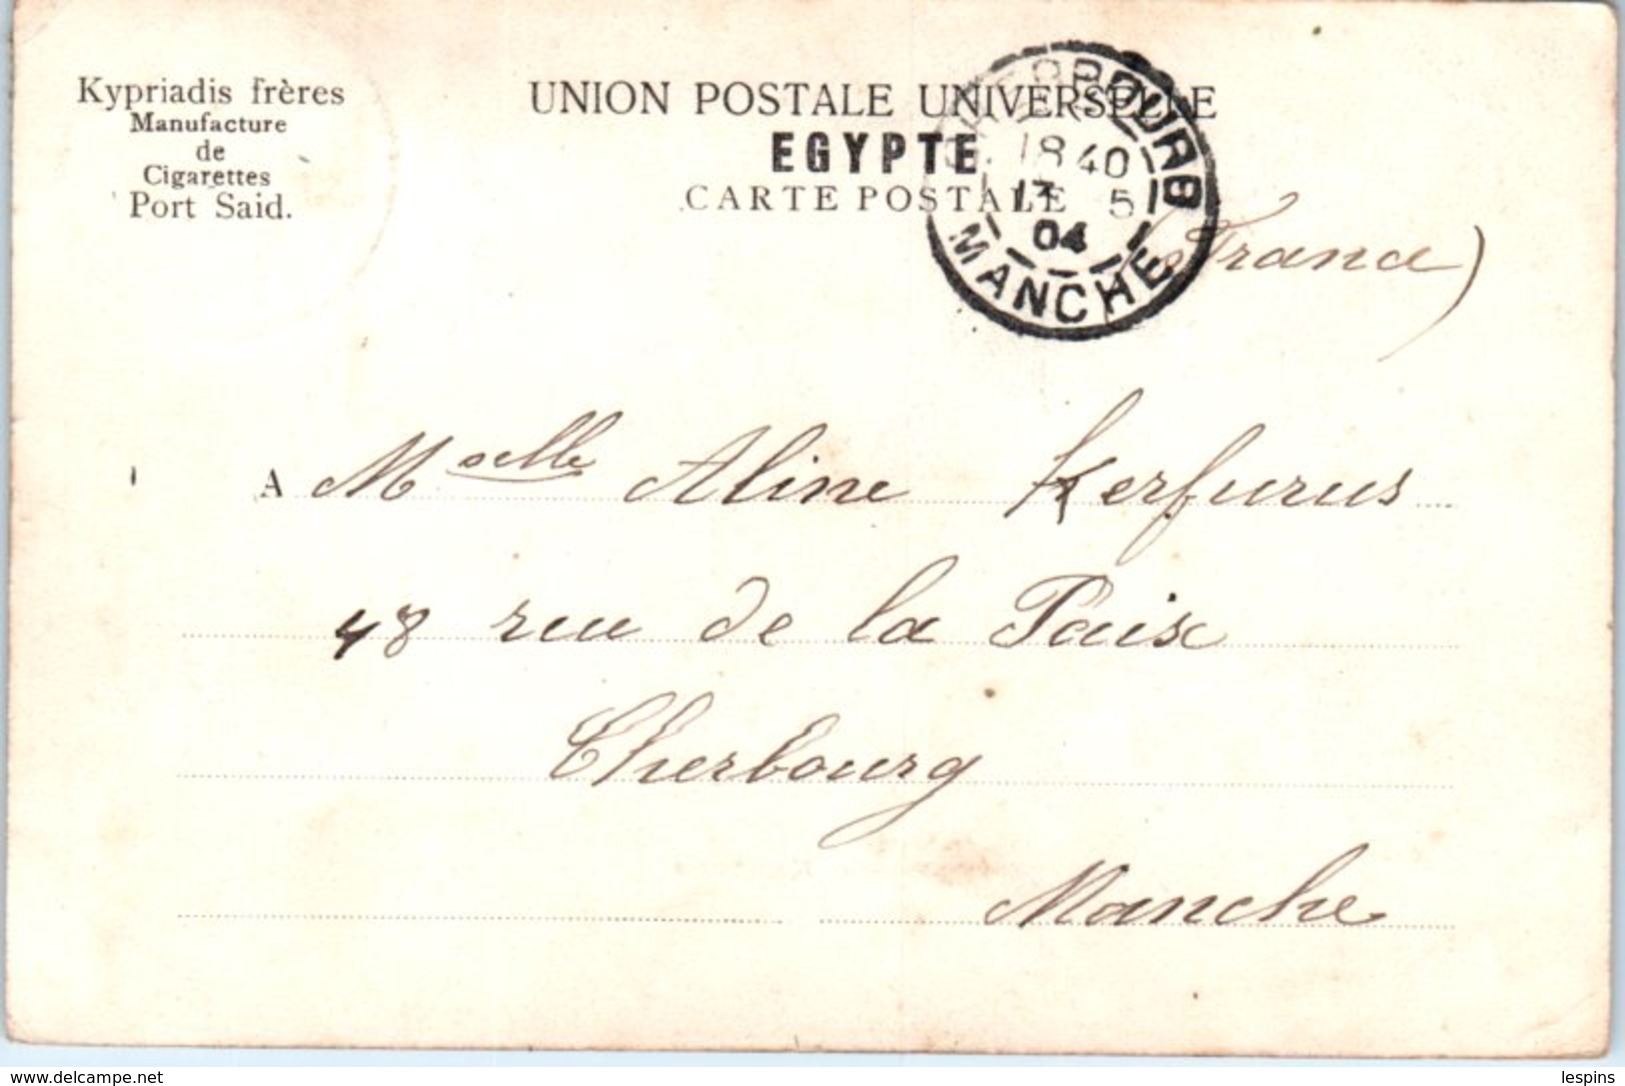 Kypriadis frères
Manufacture
de
Cigarettes
Port Said.
UNION POSTALE UNIVERSELLE
EGYPTE
CARTE POSTALE
CHERBOURG
18 40
5
04
MANCHE
(France)
A Mselle Aline Kerfurus
48 rue de la Paix
Cherbourg
Manche
www.delcampe.net
lespins